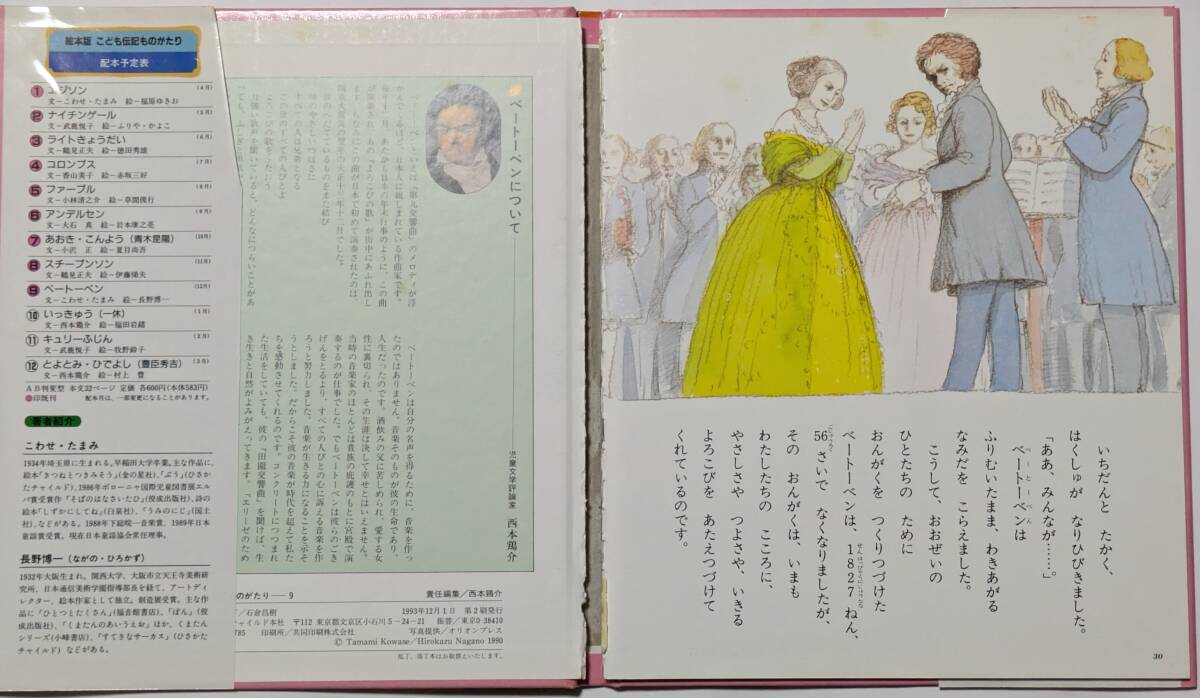 絵本版 こども伝記ものがたり
配本予定表
① エジソン (4月)
文－こわせ・たまみ 絵－福原ゆきお
② ナイチンゲール (5月)
文－武鹿悦子 絵－ふりや・かよこ
③ ライトきょうだい (6月)
文－鶴見正夫 絵－徳田秀雄
④ コロンブス (7月)
文－香山美子 絵－赤坂三好
⑤ ファーブル (8月)
文－小林清之介 絵－草間俊行
⑥ アンデルセン (9月)
文－大石 真 絵－岩本康之亮
⑦ あおき・こんよう(青木昆陽) (10月)
文－小沢 正 絵－夏目尚吾
⑧ スチーブンソン (11月)
文－鶴見正夫 絵－伊藤悌夫
⑨ ベートーベン (12月)
文－こわせ・たまみ 絵－長野博一
⑩ いっきゅう(一休) (1月)
文－西本鶏介 絵－福田岩緒
⑪ キュリーふじん (2月)
文－武鹿悦子 絵－牧野鈴子
⑫ とよとみ・ひでよし(豊臣秀吉) (3月)
文－西本鶏介 絵－村上 豊
AB判変型 本文32ページ 定価 各600円(本体583円)
●印既刊 配本月は、一部変更になることがあります。
著者紹介
こわせ・たまみ
1934年埼玉県に生まれる。早稲田大学卒業。主な作品に、
絵本「きつねとつきみそう」(金の星社)、「ぷう」(ひさか
たチャイルド)、1986年ボローニャ国際児童図書展エル
バ賞受賞作「そばのはなさいたひ」(佼成出版社)、詩の
絵本「しずかにしてね」(白泉社)、「うみのにじ」(国土
社)、などがある。1988年下総皖一音楽賞、1989年日本
童謡賞受賞、現在日本童謡協会常任理事。
長野博一(ながの・ひろかず)
1932年大阪生まれ。関西大学、大阪市立美術研
究所、日本通信美術学園指導部長を経て、アートディ
レクター、絵本作家として独立。創造展受賞。主な作
品に「ひとつとたくさん」(福音館書店)、「ぱん」(佼
成出版社)、「くまたんのあいうえお」ほか、くまたん
シリーズ(小峰書店)、「すてきなサーカス」(ひさかた
チャイルド)などがある。
ベートーベンについて
児童文学評論家 西本鶏介
ベートーベンは自分の名声を得るために、音楽を作っ
たのではありません。音楽そのものが彼の生命であり、
人生だったのです。酒飲みの父に苦しめられ、愛する女
性に裏切られ、その生涯は決して幸せとはいえません。
当時の音楽家のほとんどは貴族の庇護のもとに宮殿で演
奏するのが仕事でした。でもベートーベンは彼らのご機
げんをとるより、すべての人びとの心に訴える音楽を作
ろうと努力しました。音楽が生きる力になることを示そ
うとしました。だからこそ彼の音楽が時代を超えて私た
ちを感動させてくれるのです。コンクリートにつつまれ
た生活をしていても、彼の『田園交響曲』を聞けば、生
き生きと自然がよみがえってきます。『エリーゼのため
のがたり－9
責任編集／西本鶏介
／石倉昌樹
1993年12月1日 第2刷発行
チャイルド本社 〒112 東京都文京区小石川5－24－21 振替／東京0-38410
785 印刷所／共同印刷株式会社 写真提供／オリオンプレス
© Tamami Kowase／Hirokazu Nagano 1990
乱丁、落丁本はお取替えいたします。
いちだんと たかく、
はくしゅが なりひびきました。
「ああ、みんなが……。」
ベートーベンは
ふりむいたまま、わきあがる
なみだを こらえました。
こうして、おおぜいの
ひとたちの ために
おんがくを つくりつづけた
ベートーベンは、1827ねん、
56さいで なくなりましたが、
その おんがくは、いまも
わたしたちの こころに、
やさしさや つよさや、いきる
よろこびを あたえつづけて
くれているのです。
30